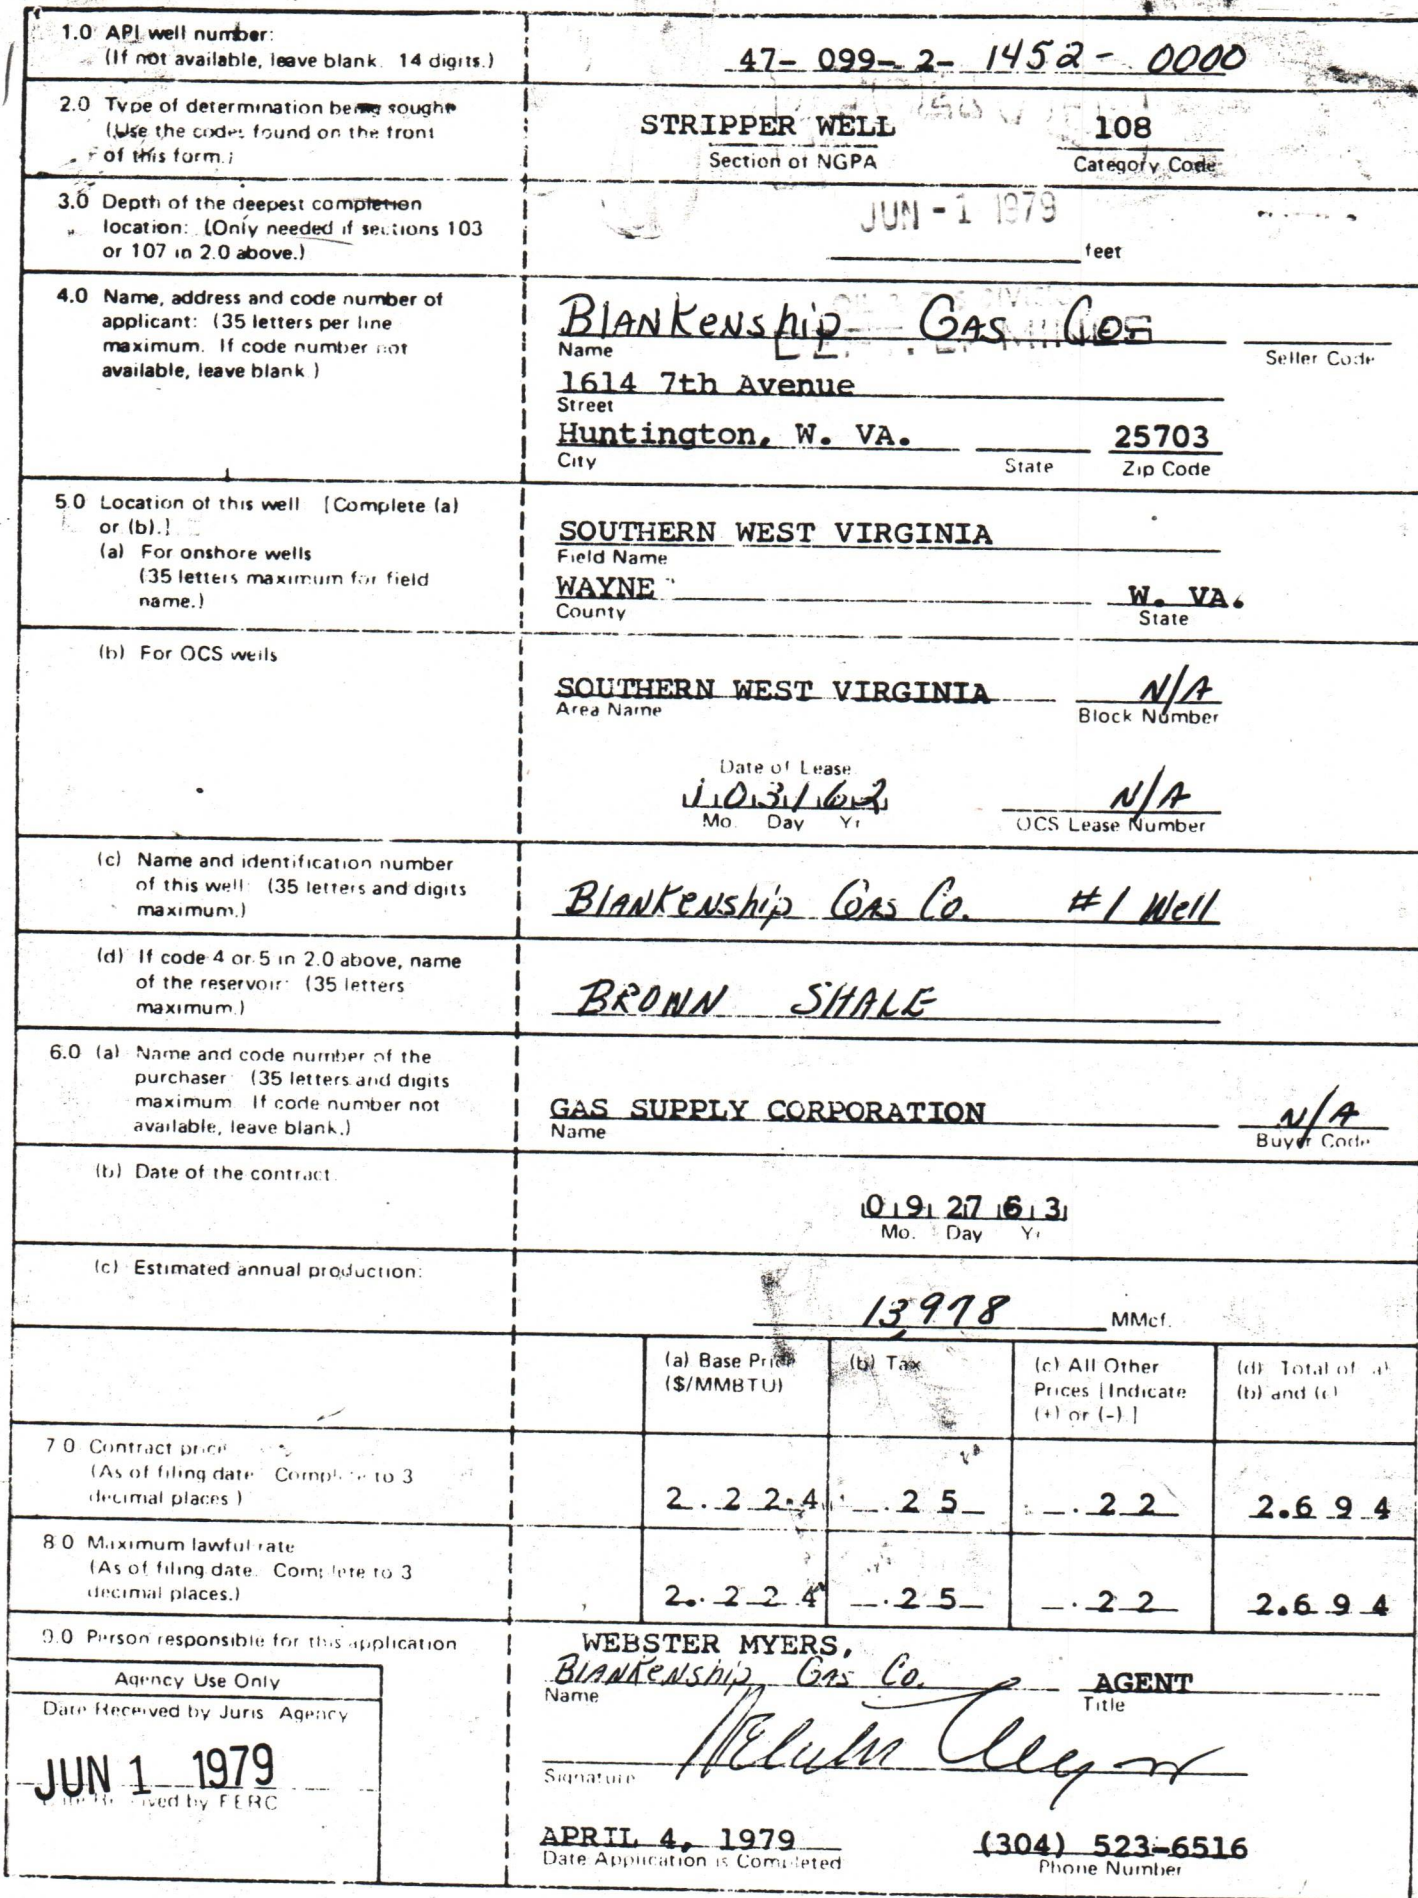 1.0 API well number:
(If not available, leave blank. 14 digits.)
47- 099- 2- 1452- 0000
2.0 Type of determination being sought
(Use the codes found on the front
of this form.)
STRIPPER WELL 108
Section of NGPA Category Code
JUN - 1 1979
3.0 Depth of the deepest completion
location: (Only needed if sections 103
or 107 in 2.0 above.)
feet
4.0 Name, address and code number of
applicant: (35 letters per line
maximum. If code number not
available, leave blank.)
Blankenship Gas Co.
Name Seller Code
1614 7th Avenue
Street
Huntington, W. VA. 25703
City State Zip Code
5.0 Location of this well [Complete (a)
or (b).]
(a) For onshore wells
(35 letters maximum for field
name.)
SOUTHERN WEST VIRGINIA
Field Name
WAYNE W. VA.
County State
(b) For OCS wells
SOUTHERN WEST VIRGINIA N/A
Area Name Block Number
Date of Lease
103162 N/A
Mo. Day Yr OCS Lease Number
(c) Name and identification number
of this well: (35 letters and digits
maximum.)
Blankenship Gas Co. #1 Well
(d) If code 4 or 5 in 2.0 above, name
of the reservoir: (35 letters
maximum.)
BROWN SHALE
6.0 (a) Name and code number of the
purchaser: (35 letters and digits
maximum. If code number not
available, leave blank.)
GAS SUPPLY CORPORATION N/A
Name Buyer Code
(b) Date of the contract:
092763
Mo. Day Yr
(c) Estimated annual production:
13,978 MMcf.
(a) Base Price
($/MMBTU)
(b) Tax
(c) All Other
Prices [Indicate
(+) or (-).]
(d) Total of (a)
(b) and (c)
7.0 Contract price
(As of filing date. Complete to 3
decimal places.)
2.224 .25 .22 2.694
8.0 Maximum lawful rate
(As of filing date. Complete to 3
decimal places.)
2.224 .25 .22 2.694
9.0 Person responsible for this application
WEBSTER MYERS,
Blankenship Gas Co. AGENT
Name Title
Signature
APRIL 4, 1979 (304) 523-6516
Date Application is Completed Phone Number
Agency Use Only
Date Received by Juris. Agency
JUN 1 1979
Date Received by FERC